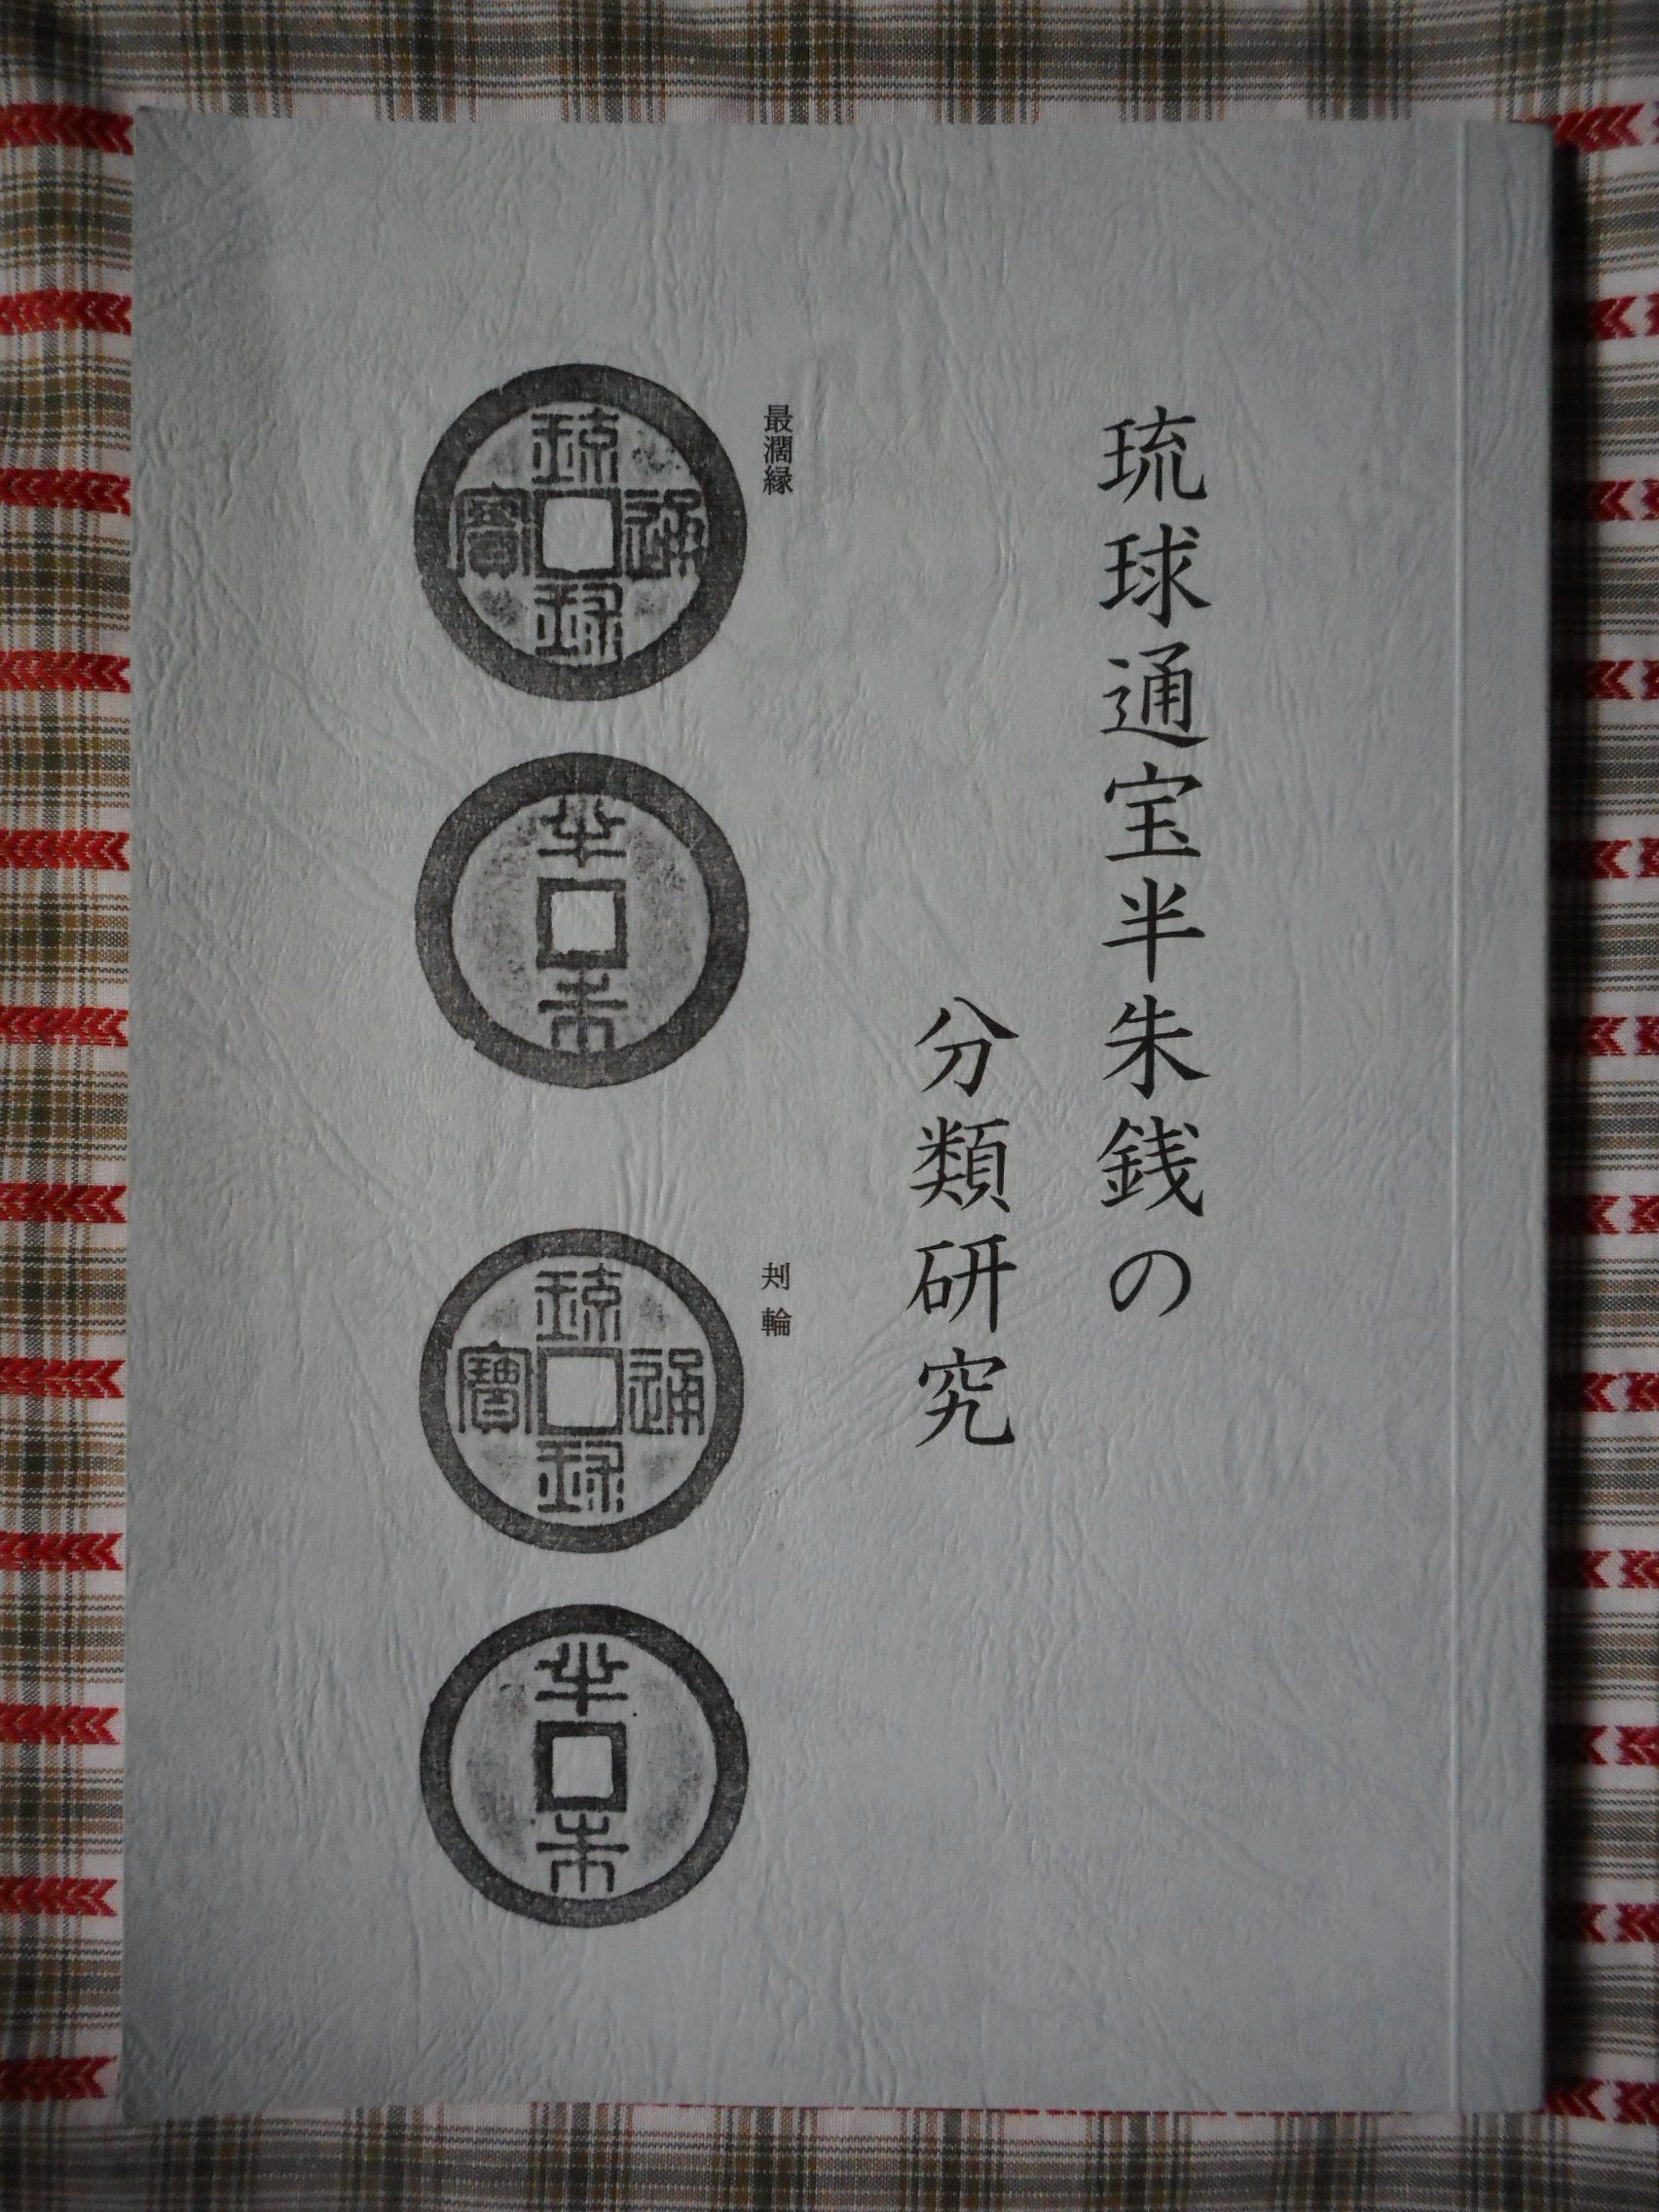 琉球通宝半朱銭の
分類研究
最濶縁
琉球通寳
半朱
刔輪
琉球通寳
半朱